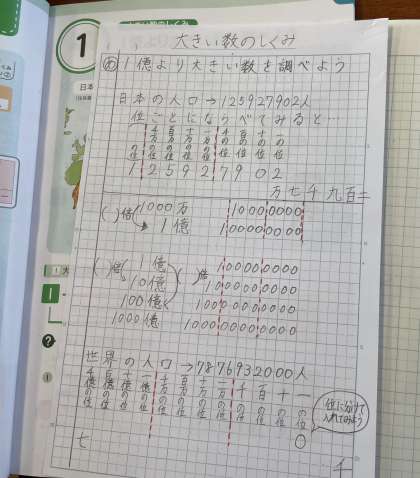 大きい数のしくみ
1
日本
め 1億より大きい数を調べよう
日本の人口→125927902人
位ごとにならべてみると…
一億の位 千万の位 百万の位 十万の位 一万の位 千の位 百の位 十の位 一の位
1 2 5 9 2 7 9 0 2
万七千九百二
( )倍 1000万 10000000
1億 100000000
( )倍 1億 ( )倍 100000000
10億 1000000000
100億 10000000000
1000億 100000000000
世界の人口→7876932000人
千億の位 百億の位 十億の位 一億の位 千万の位 百万の位 十万の位 一万の位 千の位 百の位 十の位 一の位
位に分けて
入れてみよう
七 0
千
1
?